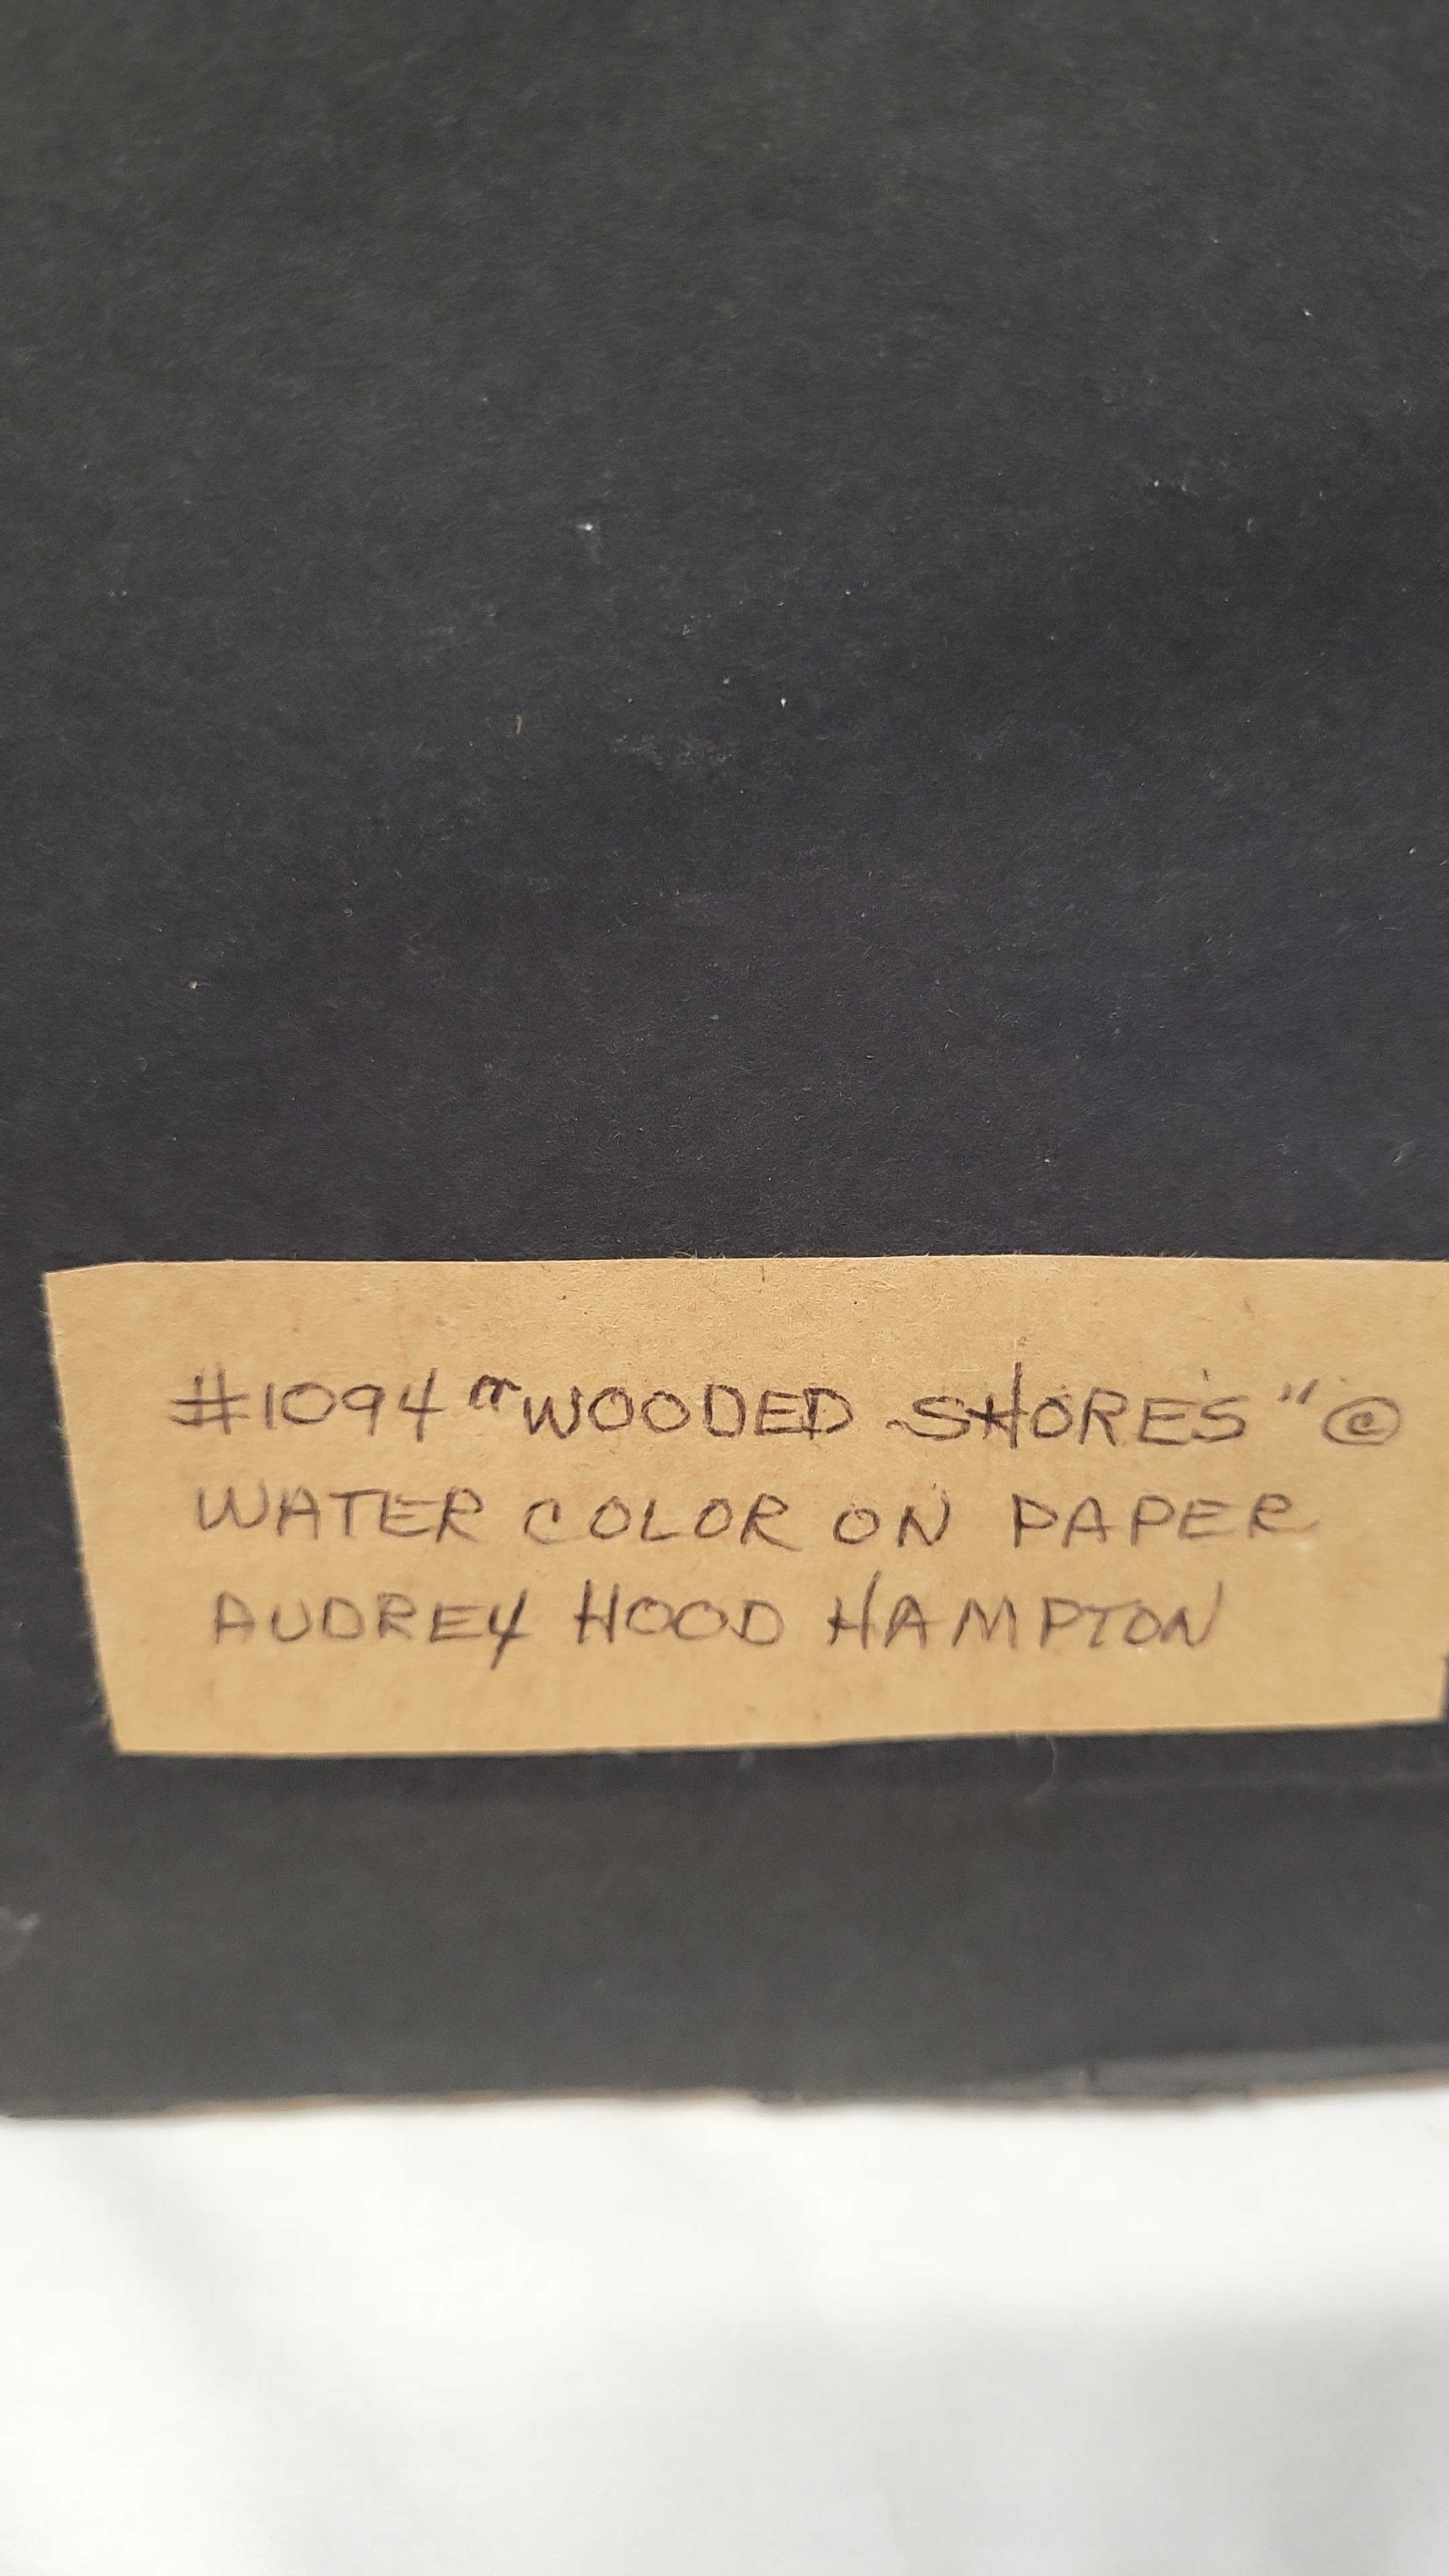 #1094 "WOODED SHORES" ©
WATER COLOR ON PAPER
AUDREY HOOD HAMPTON